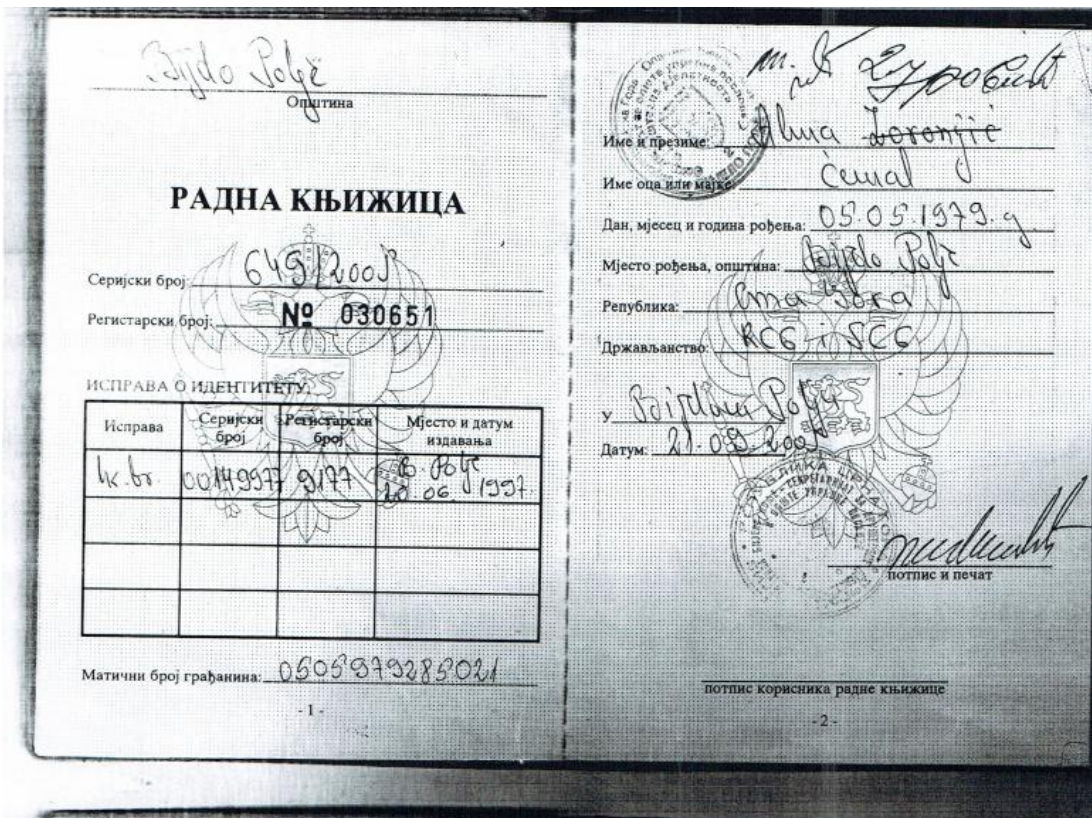 Bijelo Polje
Општина
РАДНА КЊИЖИЦА
Серијски број: 649/2005
Регистарски број: № 030651
ИСПРАВА О ИДЕНТИТЕТУ:
Исправа Серијски број Регистарски број Мјесто и датум издавања
lk. br. 00149977 9177 B. Polje 20. 06. 1997.
Матични број грађанина: 0505979285021
- 1 -
Име и презиме: Alma
Име оца или мајке: Ćemal
Дан, мјесец и година рођења: 05.05.1979. g
Мјесто рођења, општина: Bijelo Polje
Република: Crna Gora
Држављанство: RCG i SCG
У Bijelom Polju
Датум: 21.09.2005
потпис и печат
потпис корисника радне књижице
- 2 -